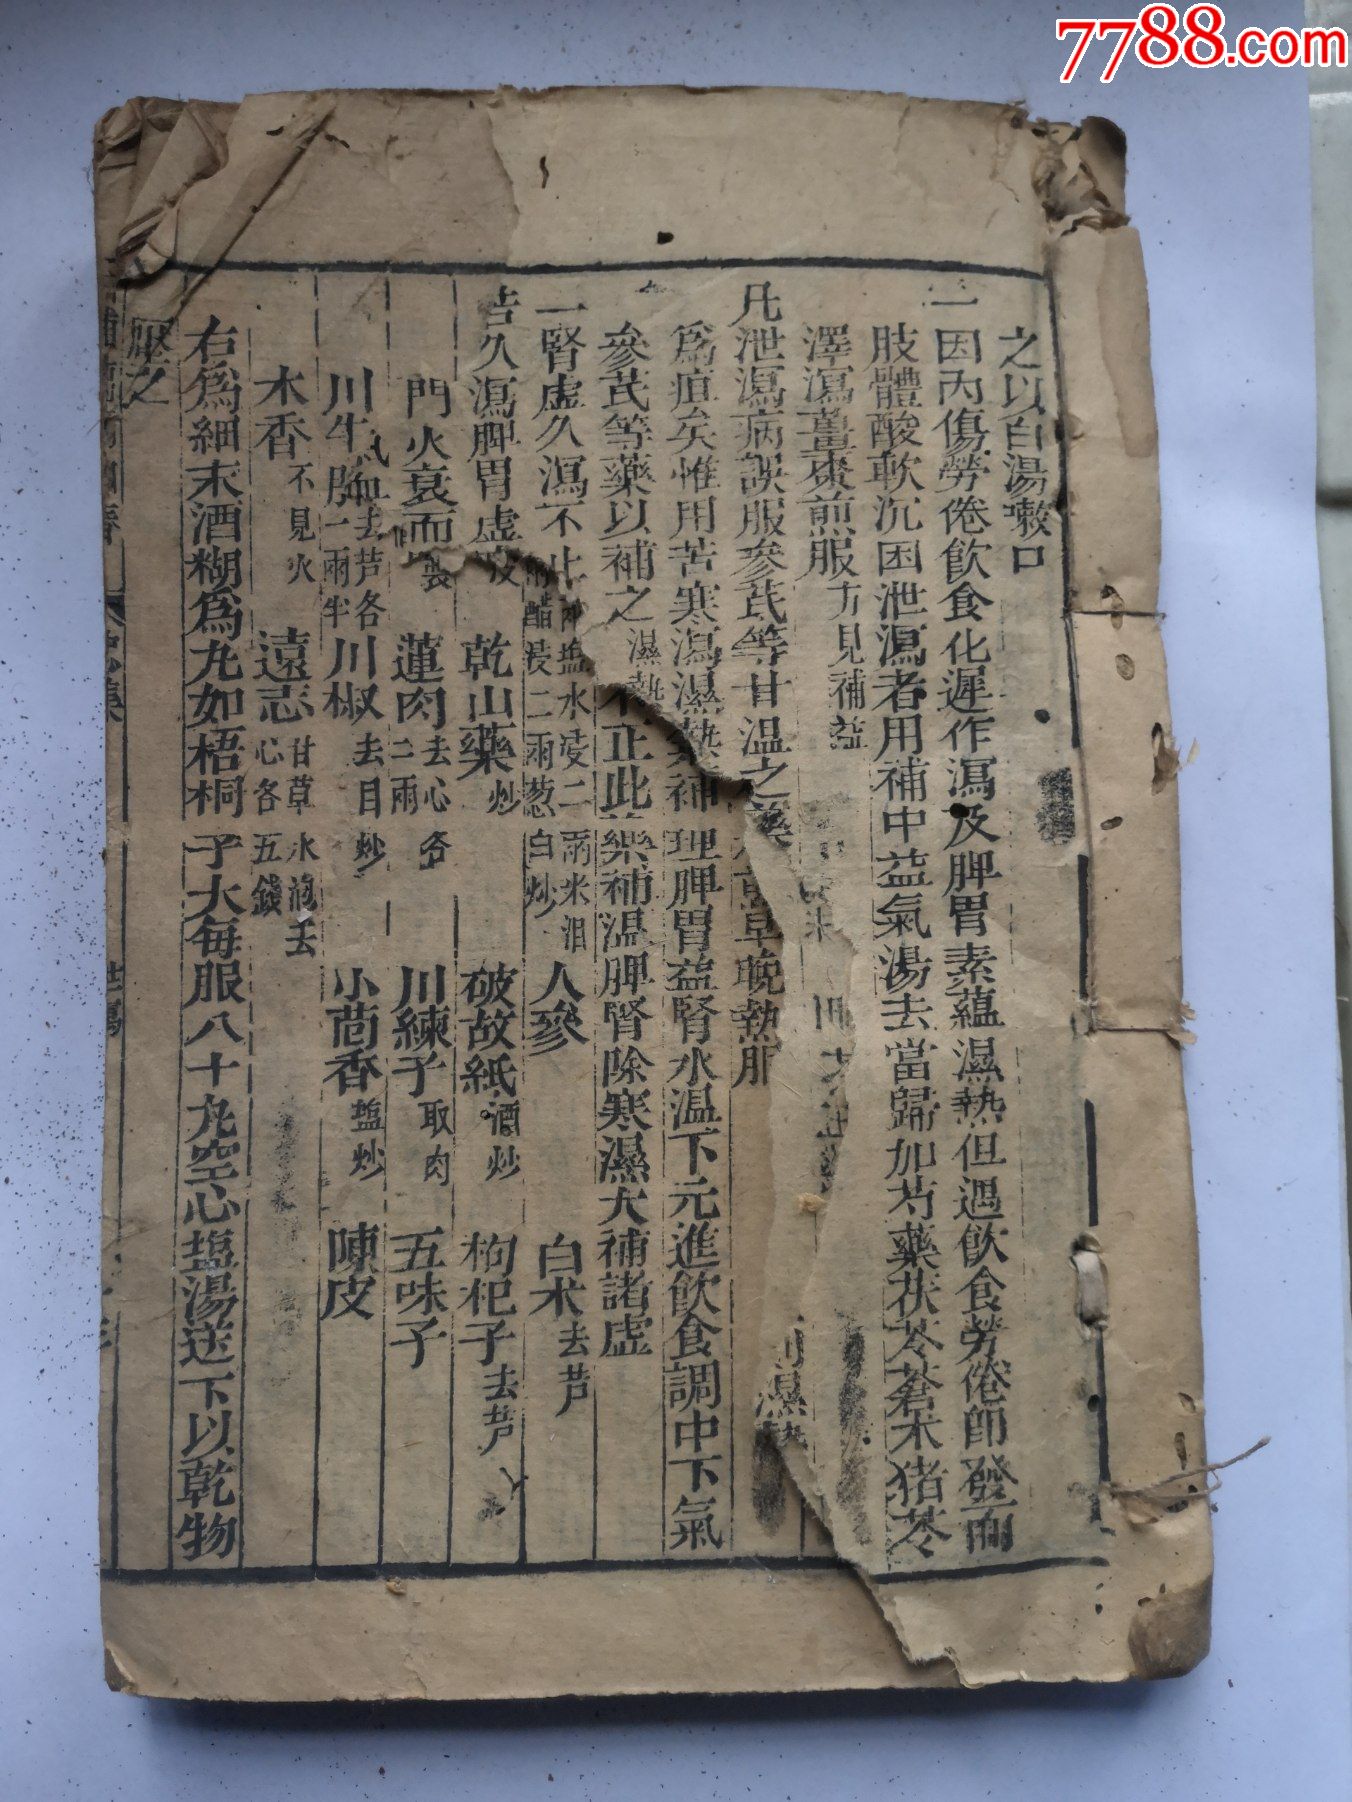 7788.com
之以白湯漱口
一因內傷勞倦飲食化遲作瀉及脾胃素蘊濕熱但遇飲食勞倦即發而
肢體酸軟沉困泄瀉者用補中益氣湯去當歸加芍藥茯苓蒼朮猪苓
澤瀉薑棗煎服方見補益
凡泄瀉病誤服參芪等甘溫之藥
草晚熱服
濕熱
為疸矣惟用苦寒瀉濕熱補
理脾胃益腎水温下元進飲食調中下氣
參芪等藥以補之濕熱
正此
藥補温脾腎除寒濕大補諸虛
一腎虛久瀉不止
塩水浸二兩米泔
醋浸二兩葱白炒
人參
白朮去芦
久瀉脾胃虛
乾山藥炒
破故紙酒炒
枸杞子去芦
門火衰而
蓮肉去心各二兩
川練子取肉
五味子
川牛膝去芦各一兩半
川椒去目炒
小茴香塩炒
陳皮
木香不見火
遠志甘草水泡去心各五錢
右為細末酒糊為丸如梧桐子大每服八十丸空心塩湯送下以乾物
壓之
泄瀉